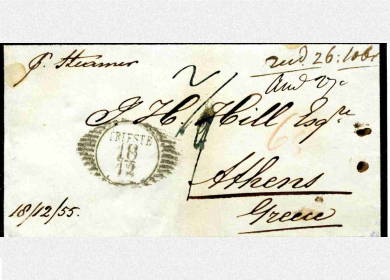 p. Steamer
recd. 26:
Ansd 27.
J H Hill Esqre
TRIESTE
18
12
Athens
Greece
18/12/55.